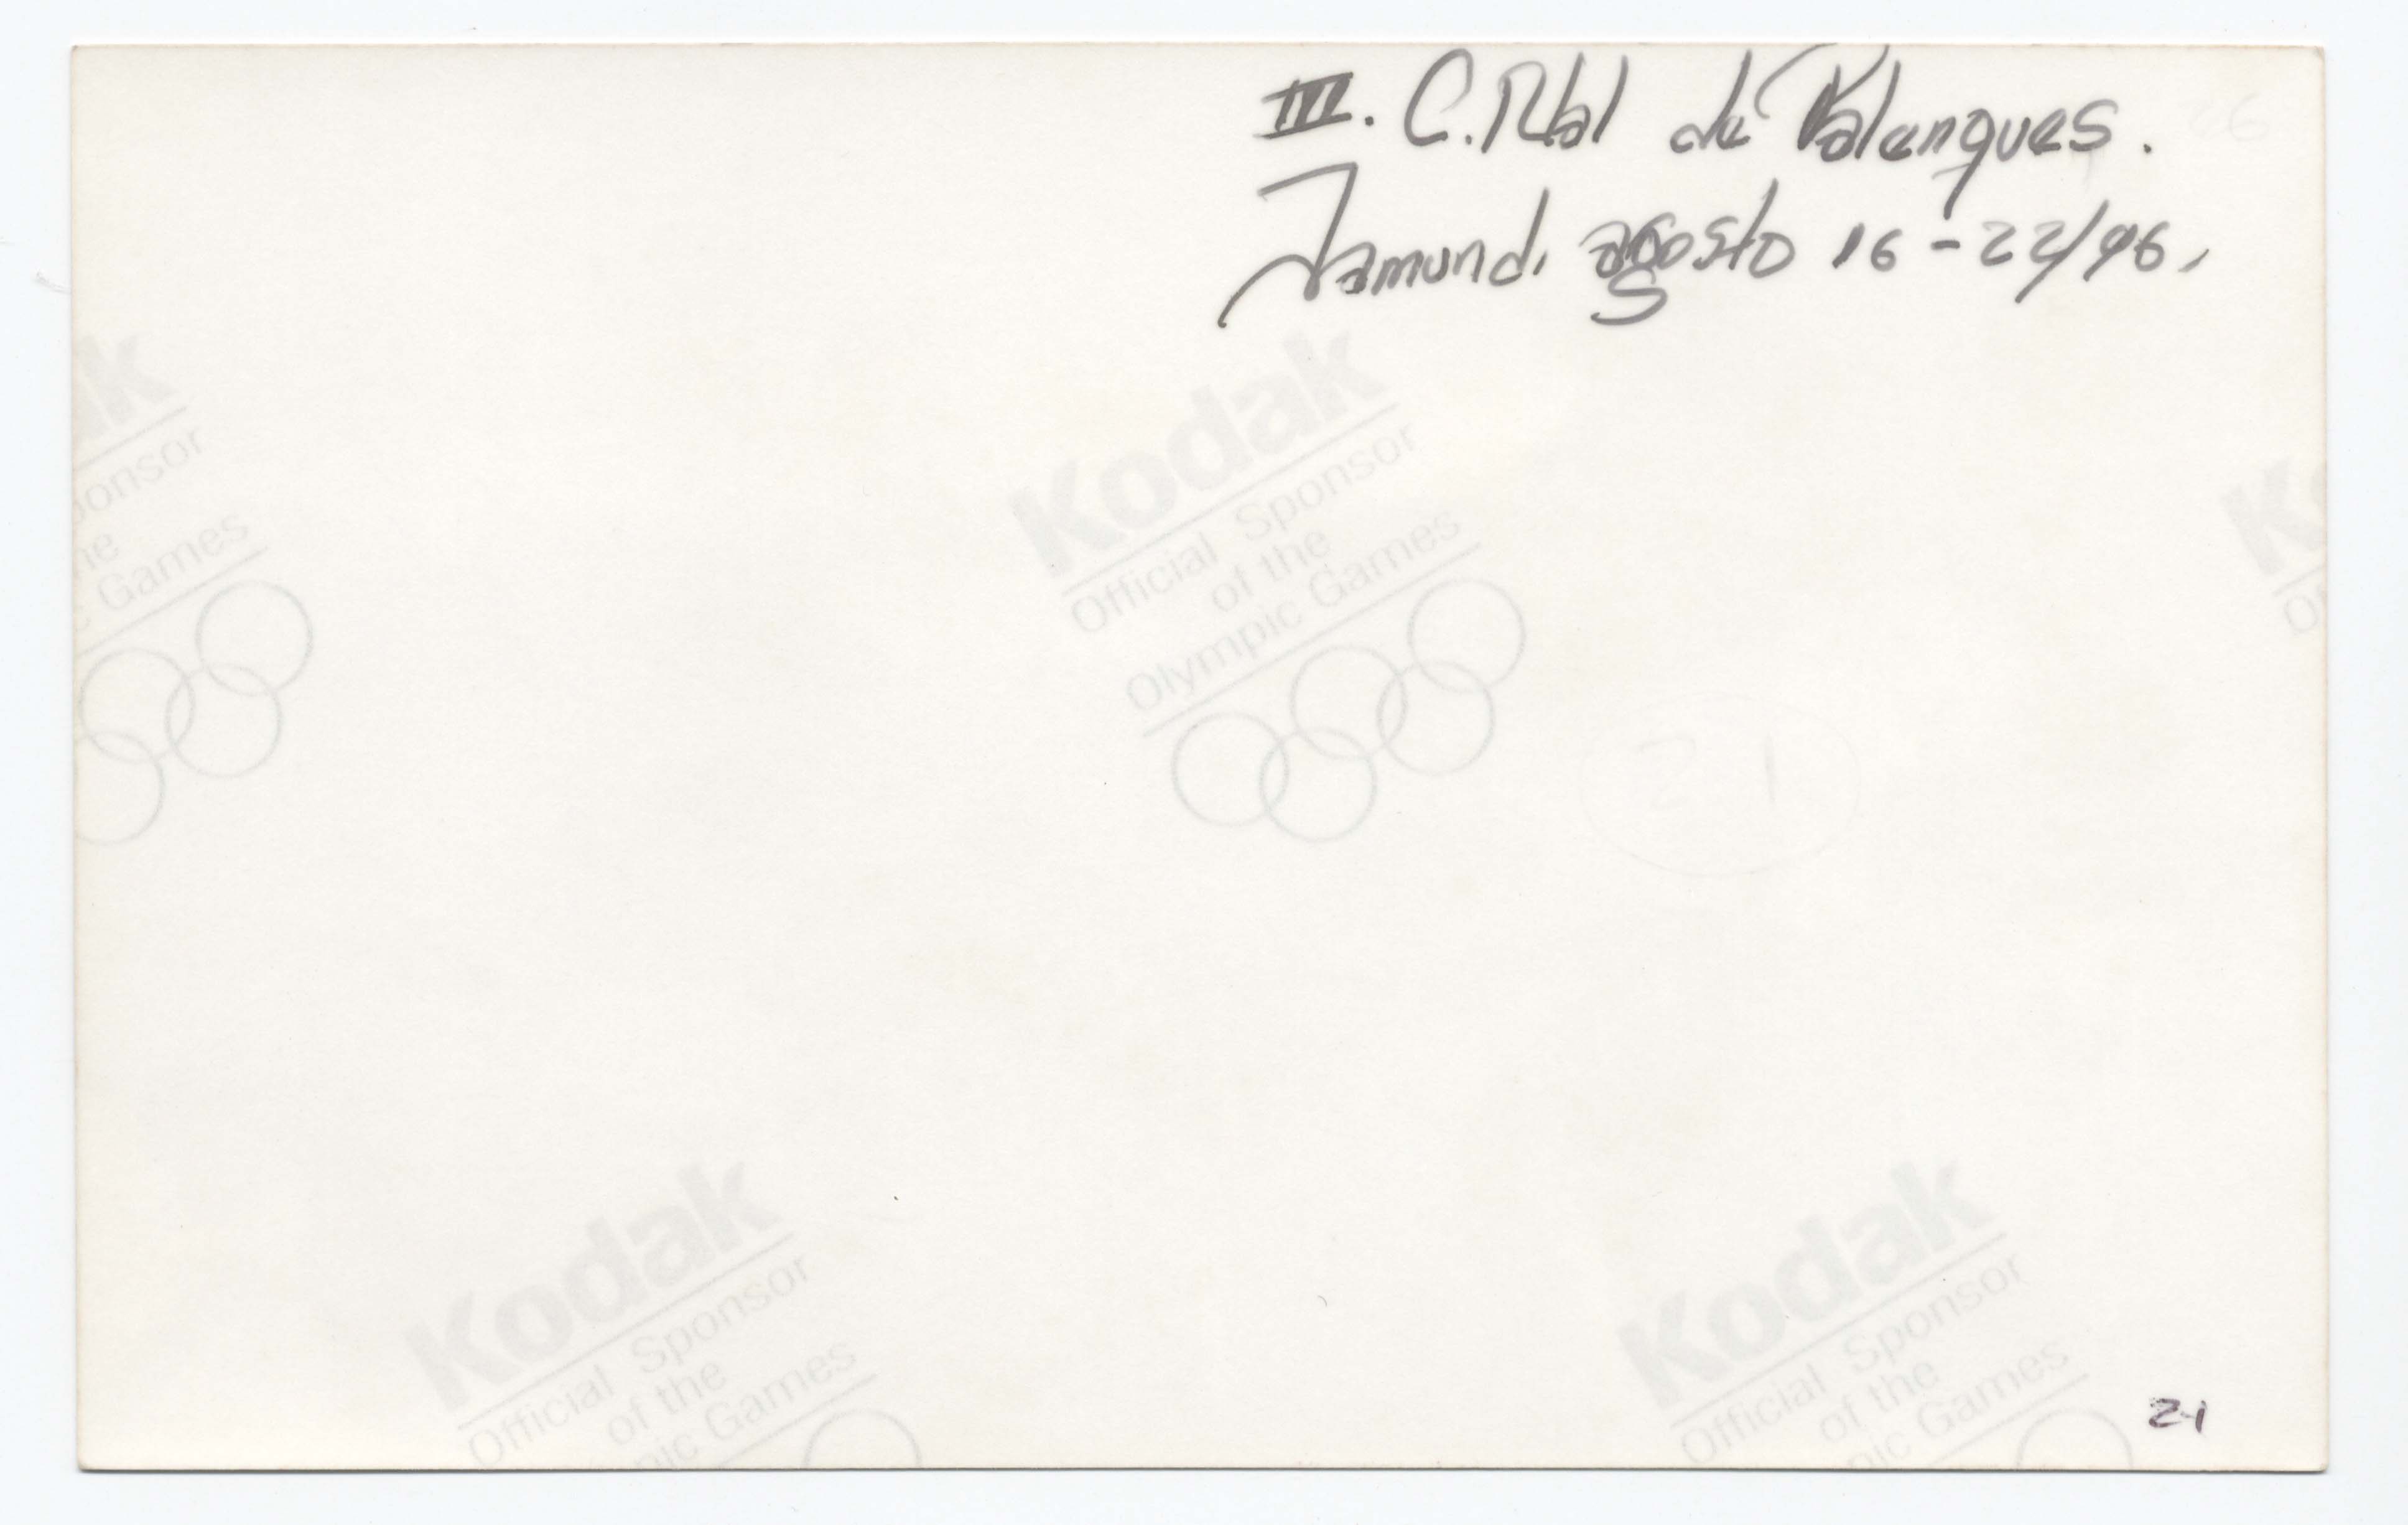 III. C. Nal de Palenques.
Jamundi agosto 16-22/96.
26
Kodak
Official Sponsor
of the
Olympic Games
ak
onsor
he
Games
K
21
Kodak
Official Sponsor
of the
pic Games
Kodak
Official Sponsor
of the
pic Games
21